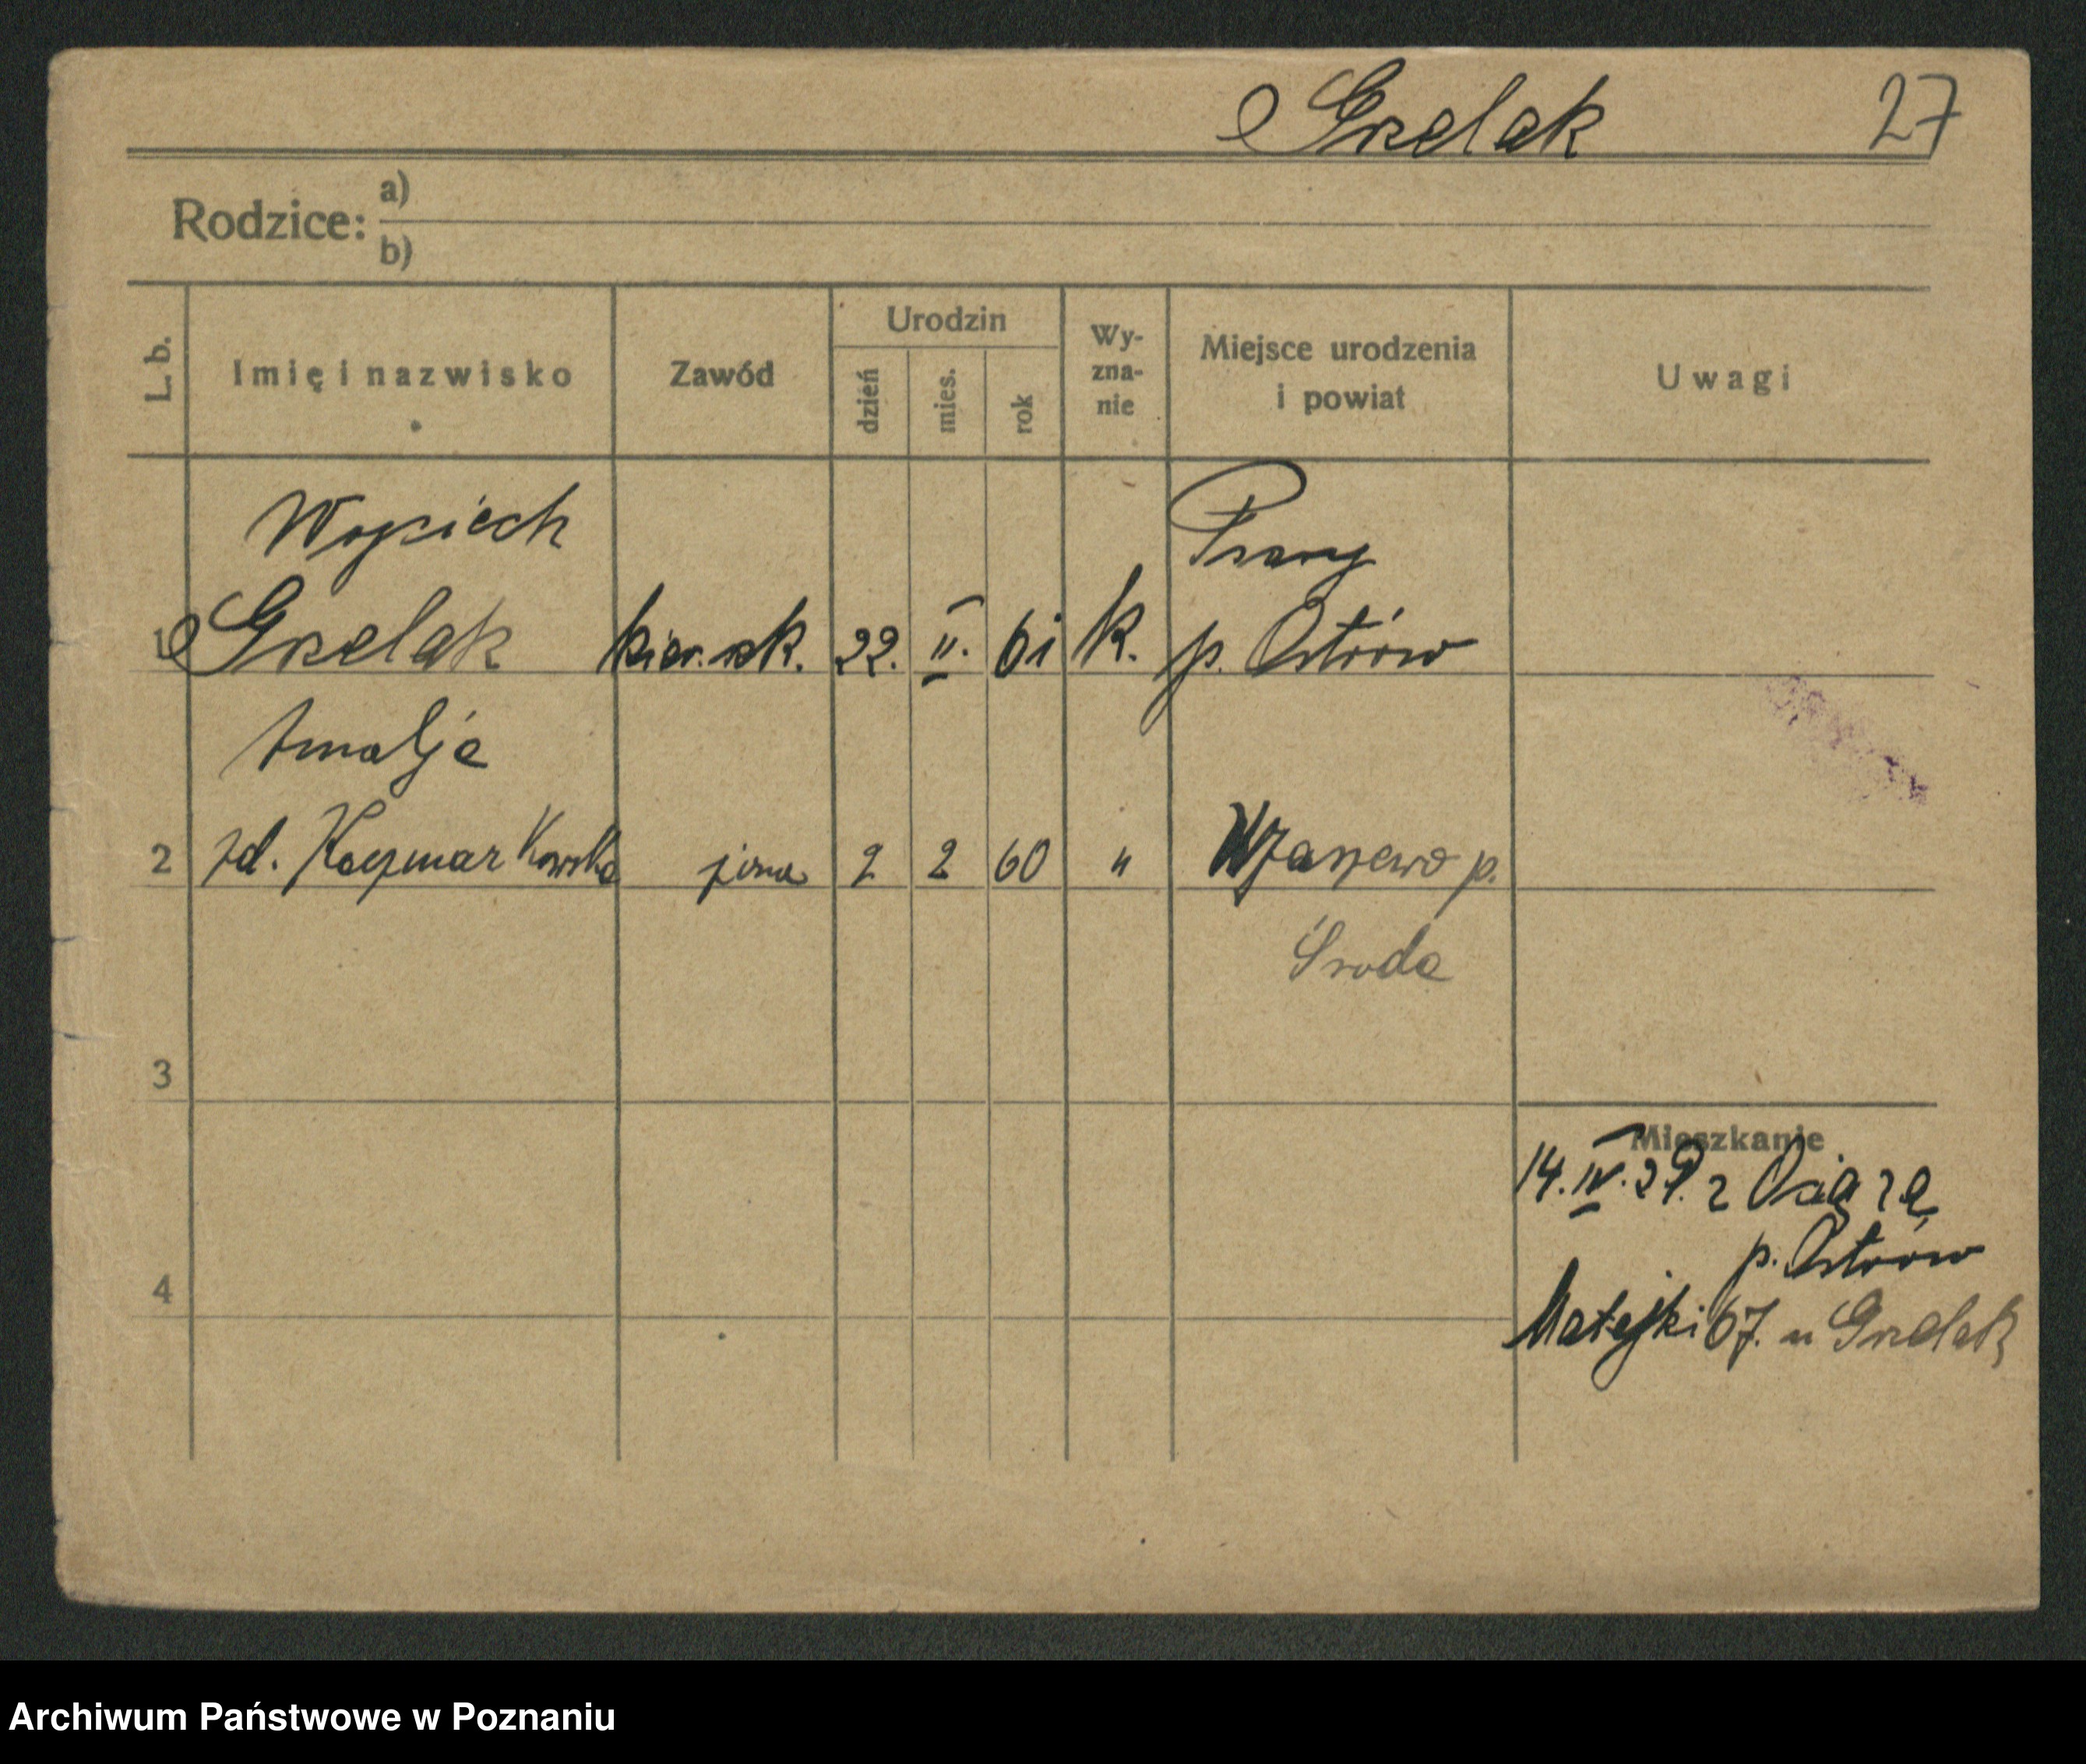 Grzelak 27
Rodzice: a)
b)
L. b. Imię i nazwisko Zawód Urodzin dzień mies. rok Wy-zna-nie Miejsce urodzenia i powiat Uwagi
Wojciech Psary
1 Grzelak kier. szk. 22. II. 61 k. p. Ostrów
Amalja
2 zd. Kaczmarkowska żona 2 2 60 "  p.
Środa
3
Mieszkanie
14. IV. 29. z
p. Ostrów
4
Matejki 67. u Grzelak
Archiwum Państwowe w Poznaniu